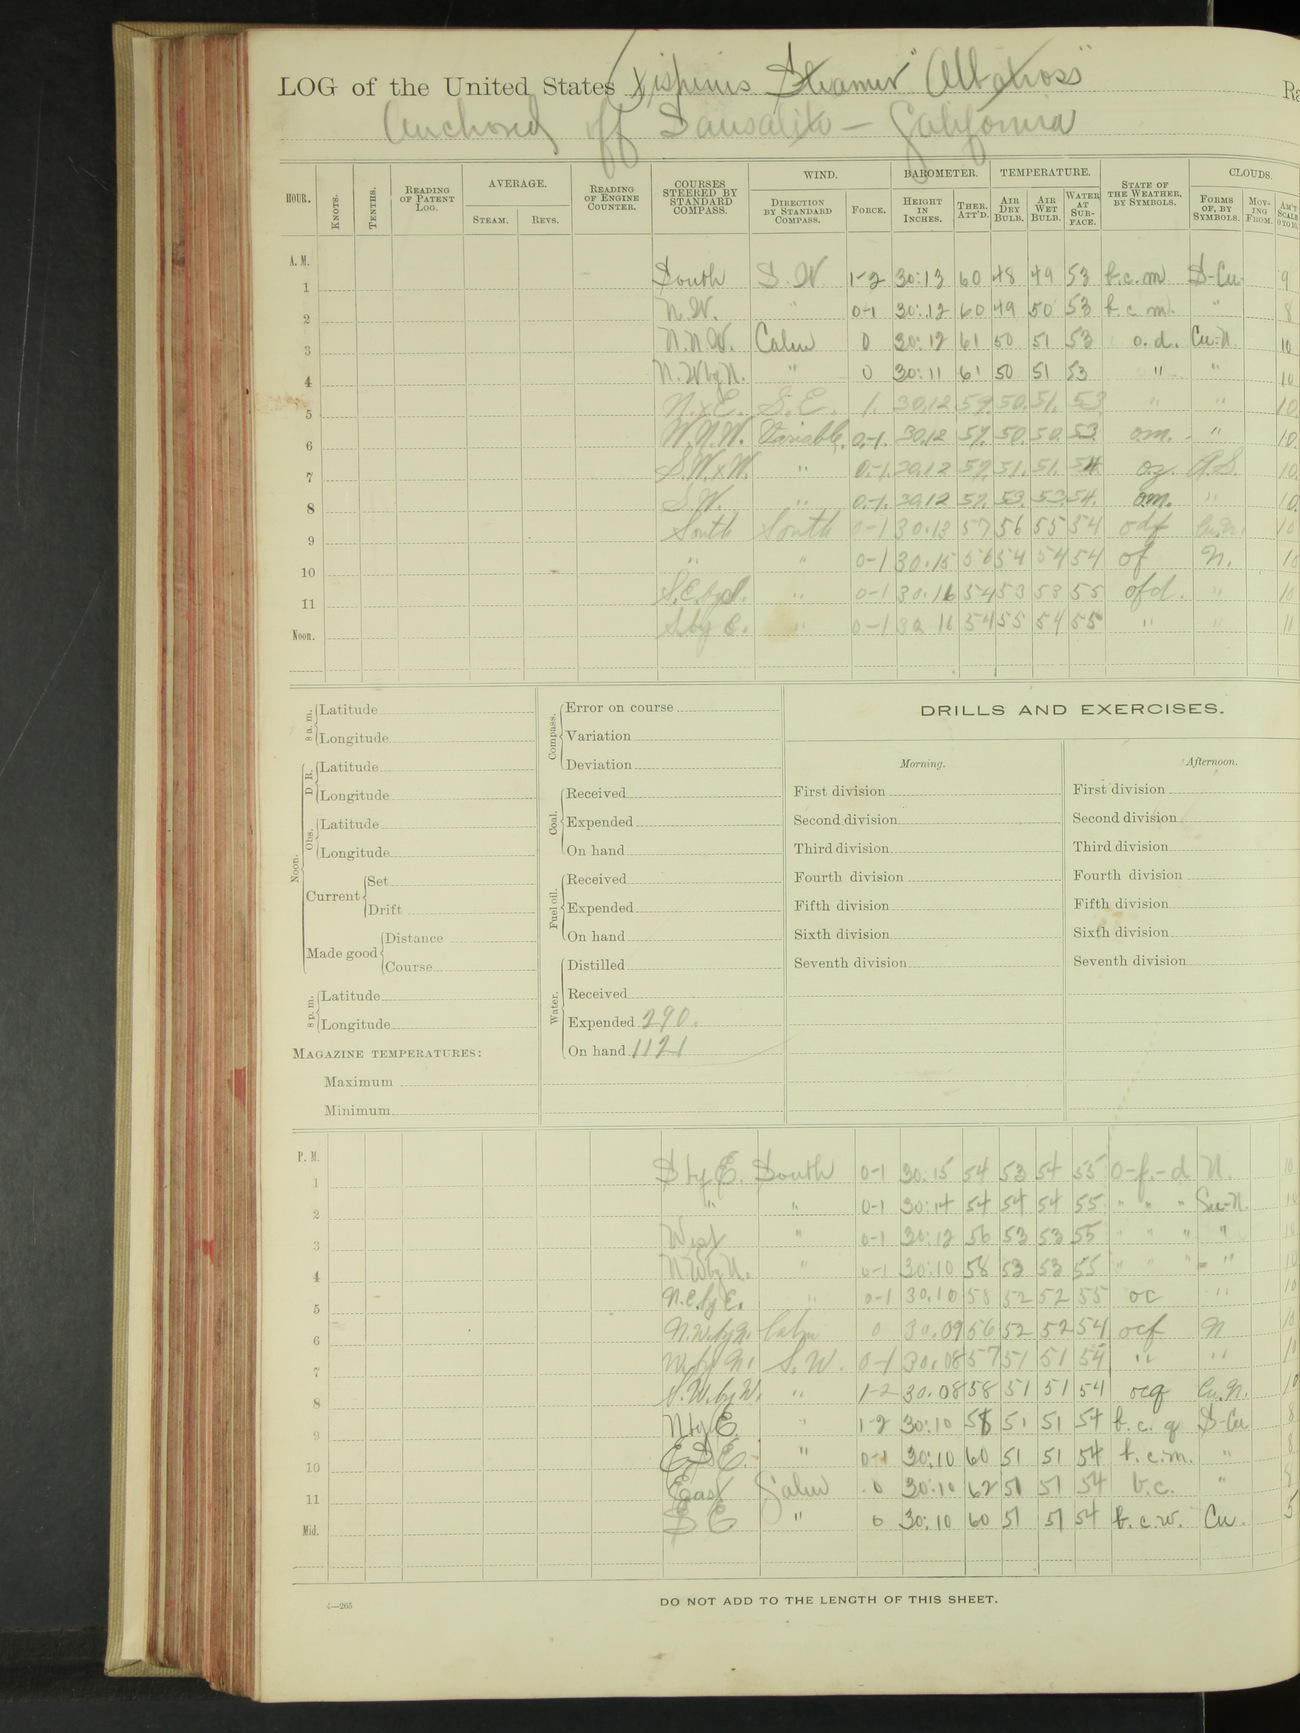 LOG of the United States Fisheries Steamer "Albatross" Ra
Anchored off Sausalito — California
HOUR. KNOTS. TENTHS. READING OF PATENT LOG. AVERAGE. STEAM. REVS. READING OF ENGINE COUNTER. COURSES STEERED BY STANDARD COMPASS. WIND. DIRECTION BY STANDARD COMPASS. FORCE. BAROMETER. HEIGHT IN INCHES. THER. ATT'D. TEMPERATURE. AIR DRY BULB. AIR WET BULB. WATER AT SURFACE. STATE OF THE WEATHER, BY SYMBOLS. CLOUDS. FORMS OF, BY SYMBOLS. MOVING FROM. AM'T SCALE 0 TO 10.
A. M.
1 South S. W 1-2 30:13 60 48 49 53 b.c.m S-Cu 9
2 N. W. " 0-1 30:12 60 49 50 53 b. c. m. " 8
3 N.N.W. Calm 0 30:12 61 50 51 53 o.d. Cu-N. 10
4 N.W by N. " 0 30:11 61 50 51 53 " " 10
5 N.x E. S. E. 1. 30.12 59. 50. 51. 53 " " 10.
6 W.N.W. Variable. 0-1. 30.12 57. 50. 50. 53 om. " 10.
7 S.W.xW. " 0-1. 30.12 57. 51. 51. 54 10.
8 S.W. " 0-1. 30.12 57. 53. 53. 54. om. " 10.
9 South South 0-1 30.13 57 56 55 54 odf Cu.N. 10
10 " " 0-1 30.15 56 54 54 54 of N. 10
11 S.E. by S. " 0-1 30.16 54 53 53 55 ofd. " 10
Noon. S by E. " 0-1 30 16 54 55 54 55 " "
8 a. m. Latitude
Longitude
Noon. D. R. Latitude
Longitude
Obs. Latitude
Longitude
Current Set
Drift
Made good Distance
Course
8 p. m. Latitude
Longitude
MAGAZINE TEMPERATURES:
Maximum
Minimum
Compass. Error on course
Variation
Deviation
Coal. Received
Expended
On hand
Fuel oil. Received
Expended
On hand
Water. Distilled
Received
Expended 290.
On hand 1121
DRILLS AND EXERCISES.
Morning.
First division
Second division
Third division
Fourth division
Fifth division
Sixth division
Seventh division
Afternoon.
First division
Second division
Third division
Fourth division
Fifth division
Sixth division
Seventh division
P. M.
1 S by E. South 0-1 30:15 54 53 54 55 o-f.-d N. 10
2 " " 0-1 30:14 54 54 54 55 " " " 10
3 West " 0-1 30:12 56 53 53 55 " " " " 10
4 N.W by N. " 0-1 30:10 58 53 53 55 " " " " 10
5 N.E. by E. " 0-1 30.10 58 52 52 55 oc " 10
6 N.W. by N. Calm 0 30.09 56 52 52 54 ocf N 10
7 W. by N. S. W. 0-1 30.08 57 51 51 54 " " 10
8 S.W. by W. " 1-2 30.08 58 51 51 54 ocq Cu.N. 10
9 N by E. " 1-2 30:10 58 51 51 54 b. c. q S-Cu 8
10 E S E. " 0-1 30:10 60 51 51 54 b. c.m. " 8
11 East Calm 0 30:10 62 51 51 54 b.c. " 8
Mid. S E " 0 30:10 60 51 51 54 b. c. w. Cu. 5
4—265
DO NOT ADD TO THE LENGTH OF THIS SHEET.